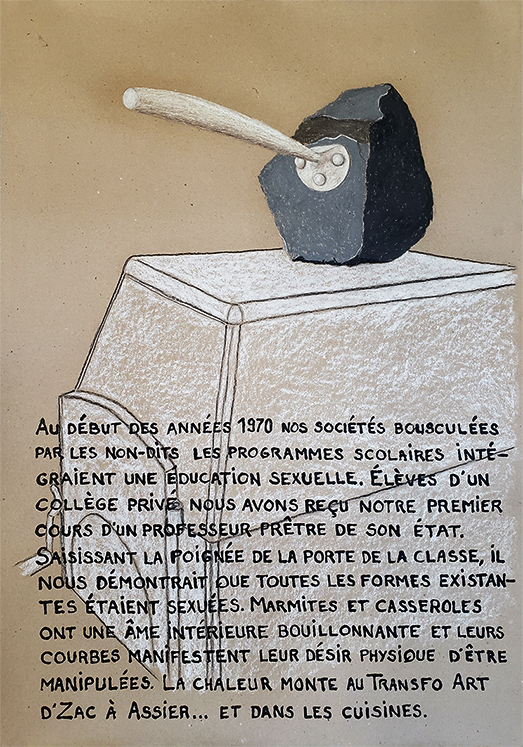 AU DÉBUT DES ANNÉES 1970 NOS SOCIÉTÉS BOUSCULÉES
PAR LES NON-DITS LES PROGRAMMES SCOLAIRES INTÉ-
GRAIENT UNE ÉDUCATION SEXUELLE. ÉLÈVES D'UN
COLLÈGE PRIVÉ, NOUS AVONS REÇU NOTRE PREMIER
COURS D'UN PROFESSEUR PRÊTRE DE SON ÉTAT.
SAISISSANT LA POIGNÉE DE LA PORTE DE LA CLASSE, IL
NOUS DÉMONTRAIT QUE TOUTES LES FORMES EXISTAN-
TES ÉTAIENT SEXUÉES. MARMITES ET CASSEROLES
ONT UNE ÂME INTÉRIEURE BOUILLONNANTE ET LEURS
COURBES MANIFESTENT LEUR DÉSIR PHYSIQUE D'ÊTRE
MANIPULÉES. LA CHALEUR MONTE AU TRANSFO ART
D'ZAC À ASSIER... ET DANS LES CUISINES.